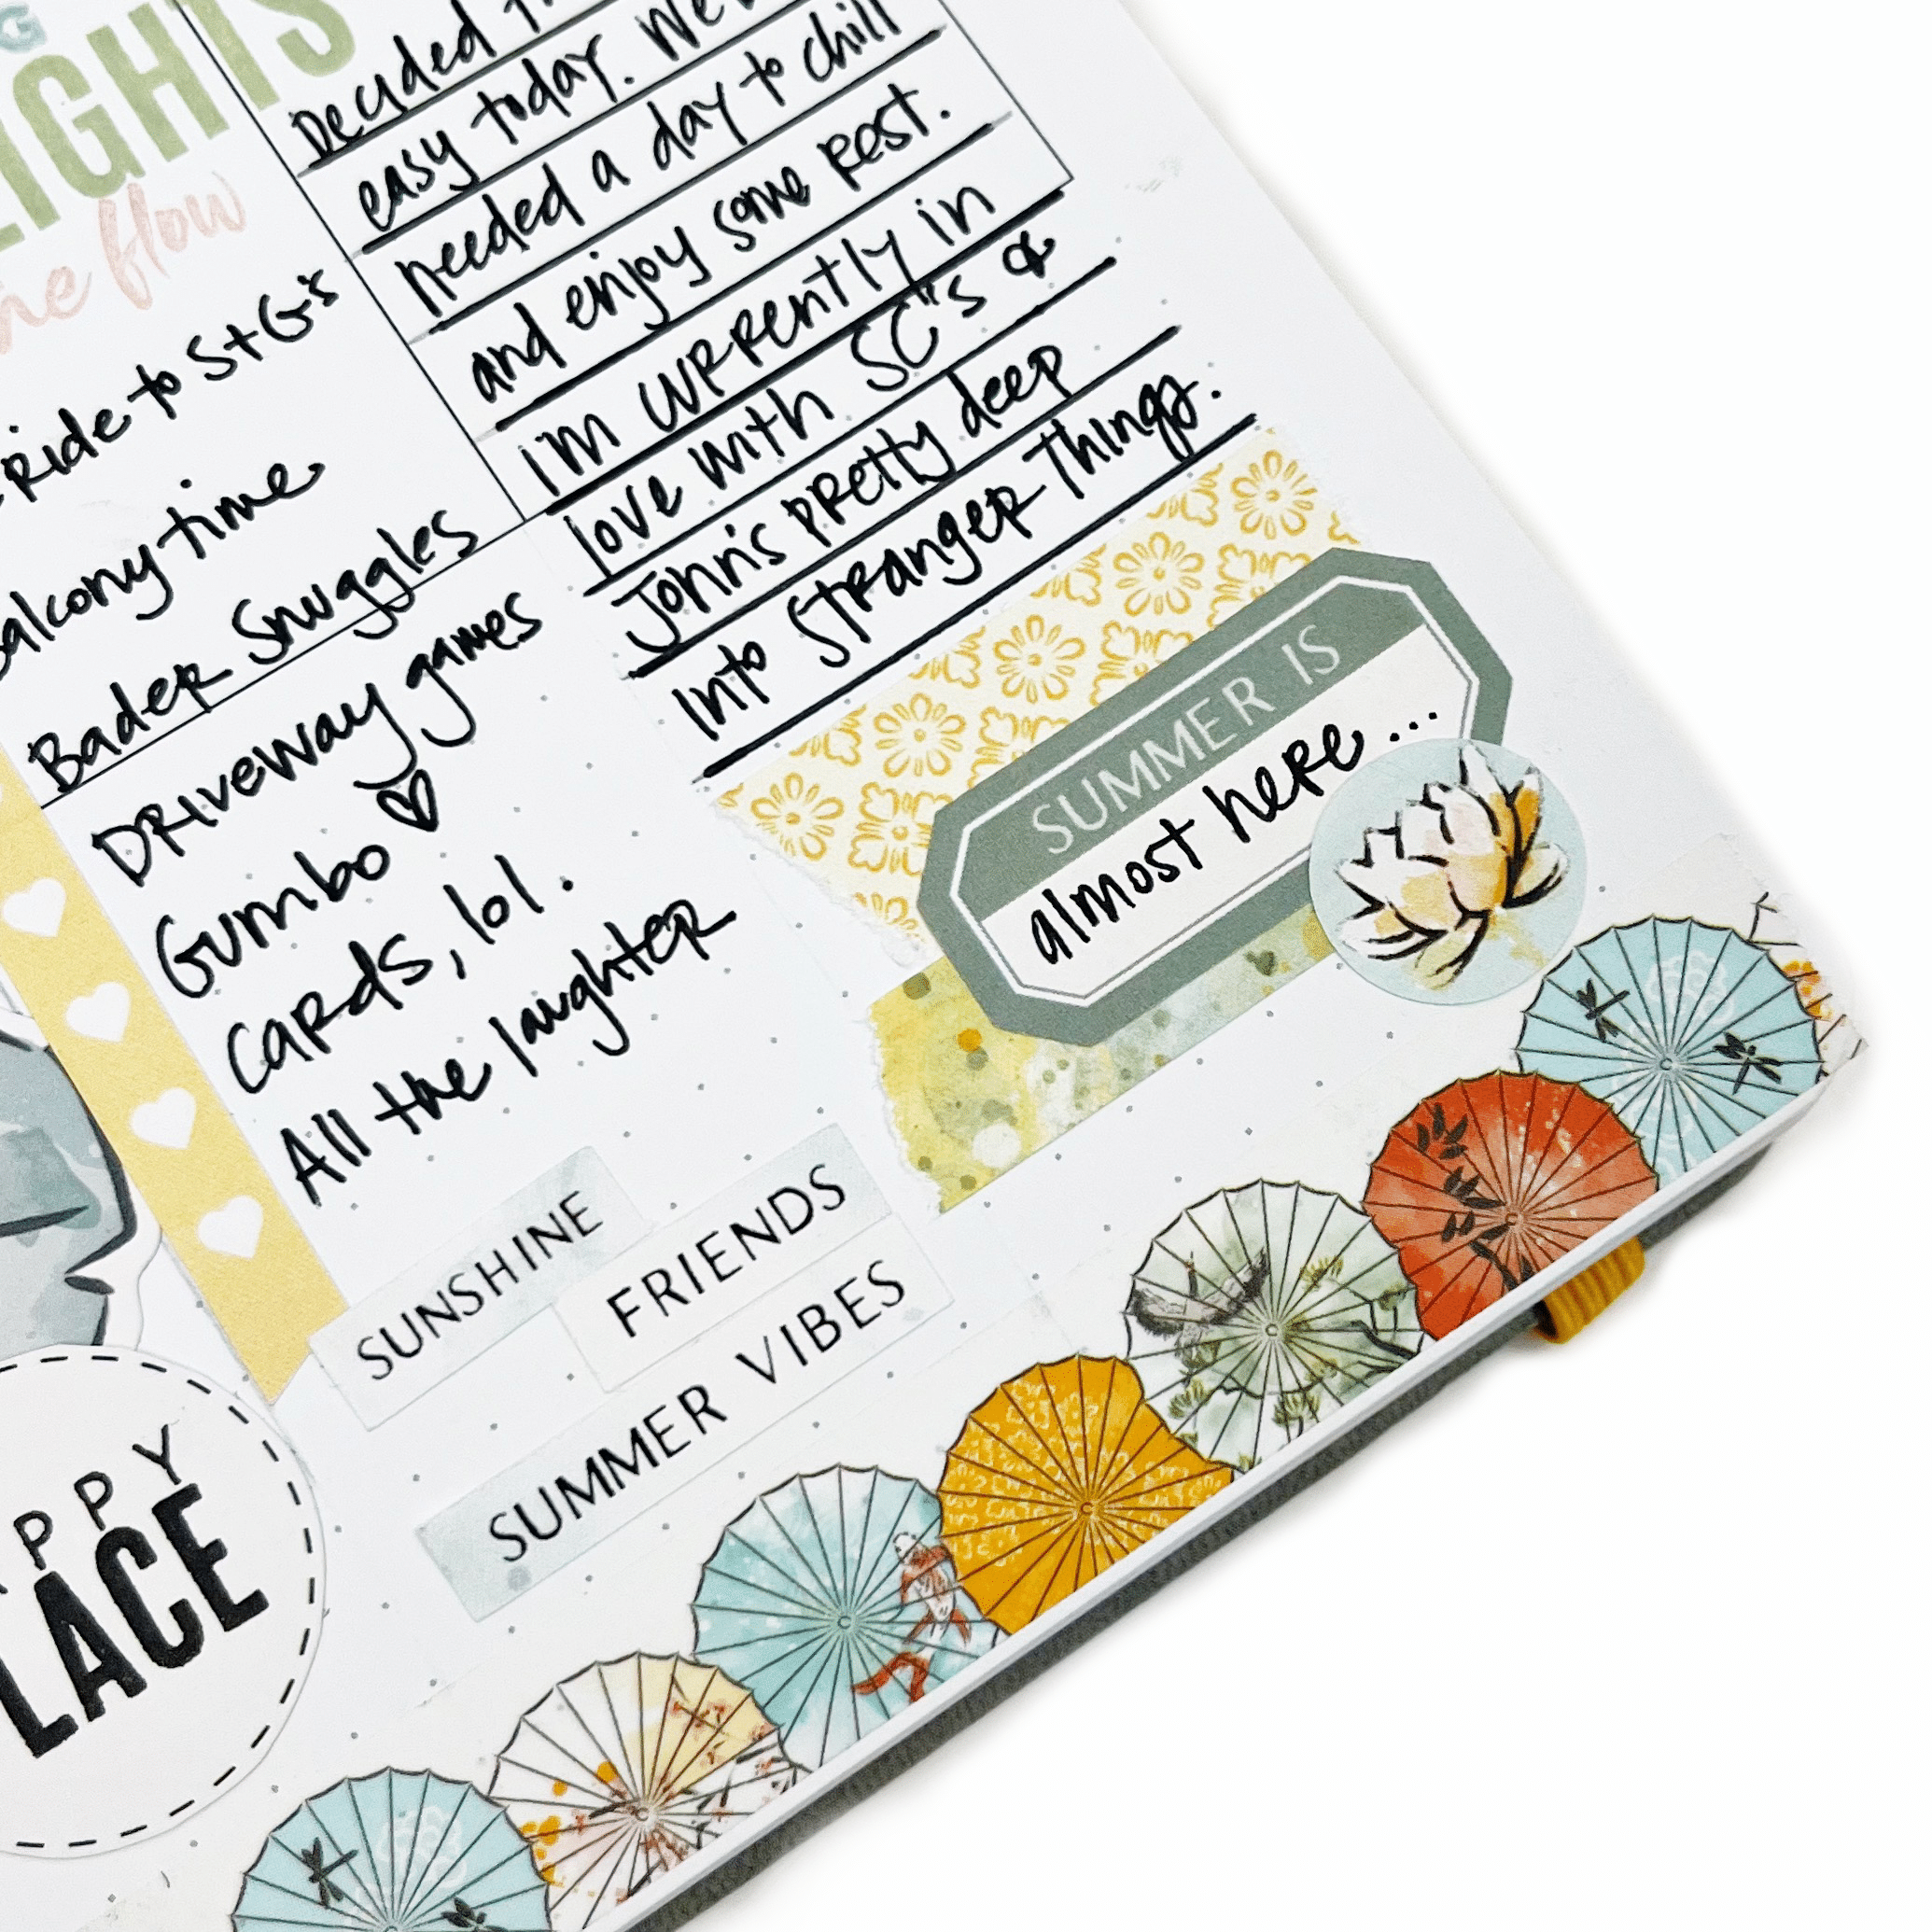 LIGHTS
flow
ride to S+G's
balcony time
Bader Snuggles
Driveway games
Gumbo
cards, lol.
All the laughter
Decided
easy today. We
needed a day to chill
and enjoy some rest.
i'm currently in
love with SC"s &
John's pretty deep
into Stranger Things.
SUMMER IS
almost here...
SUNSHINE
FRIENDS
SUMMER VIBES
PPY
LACE